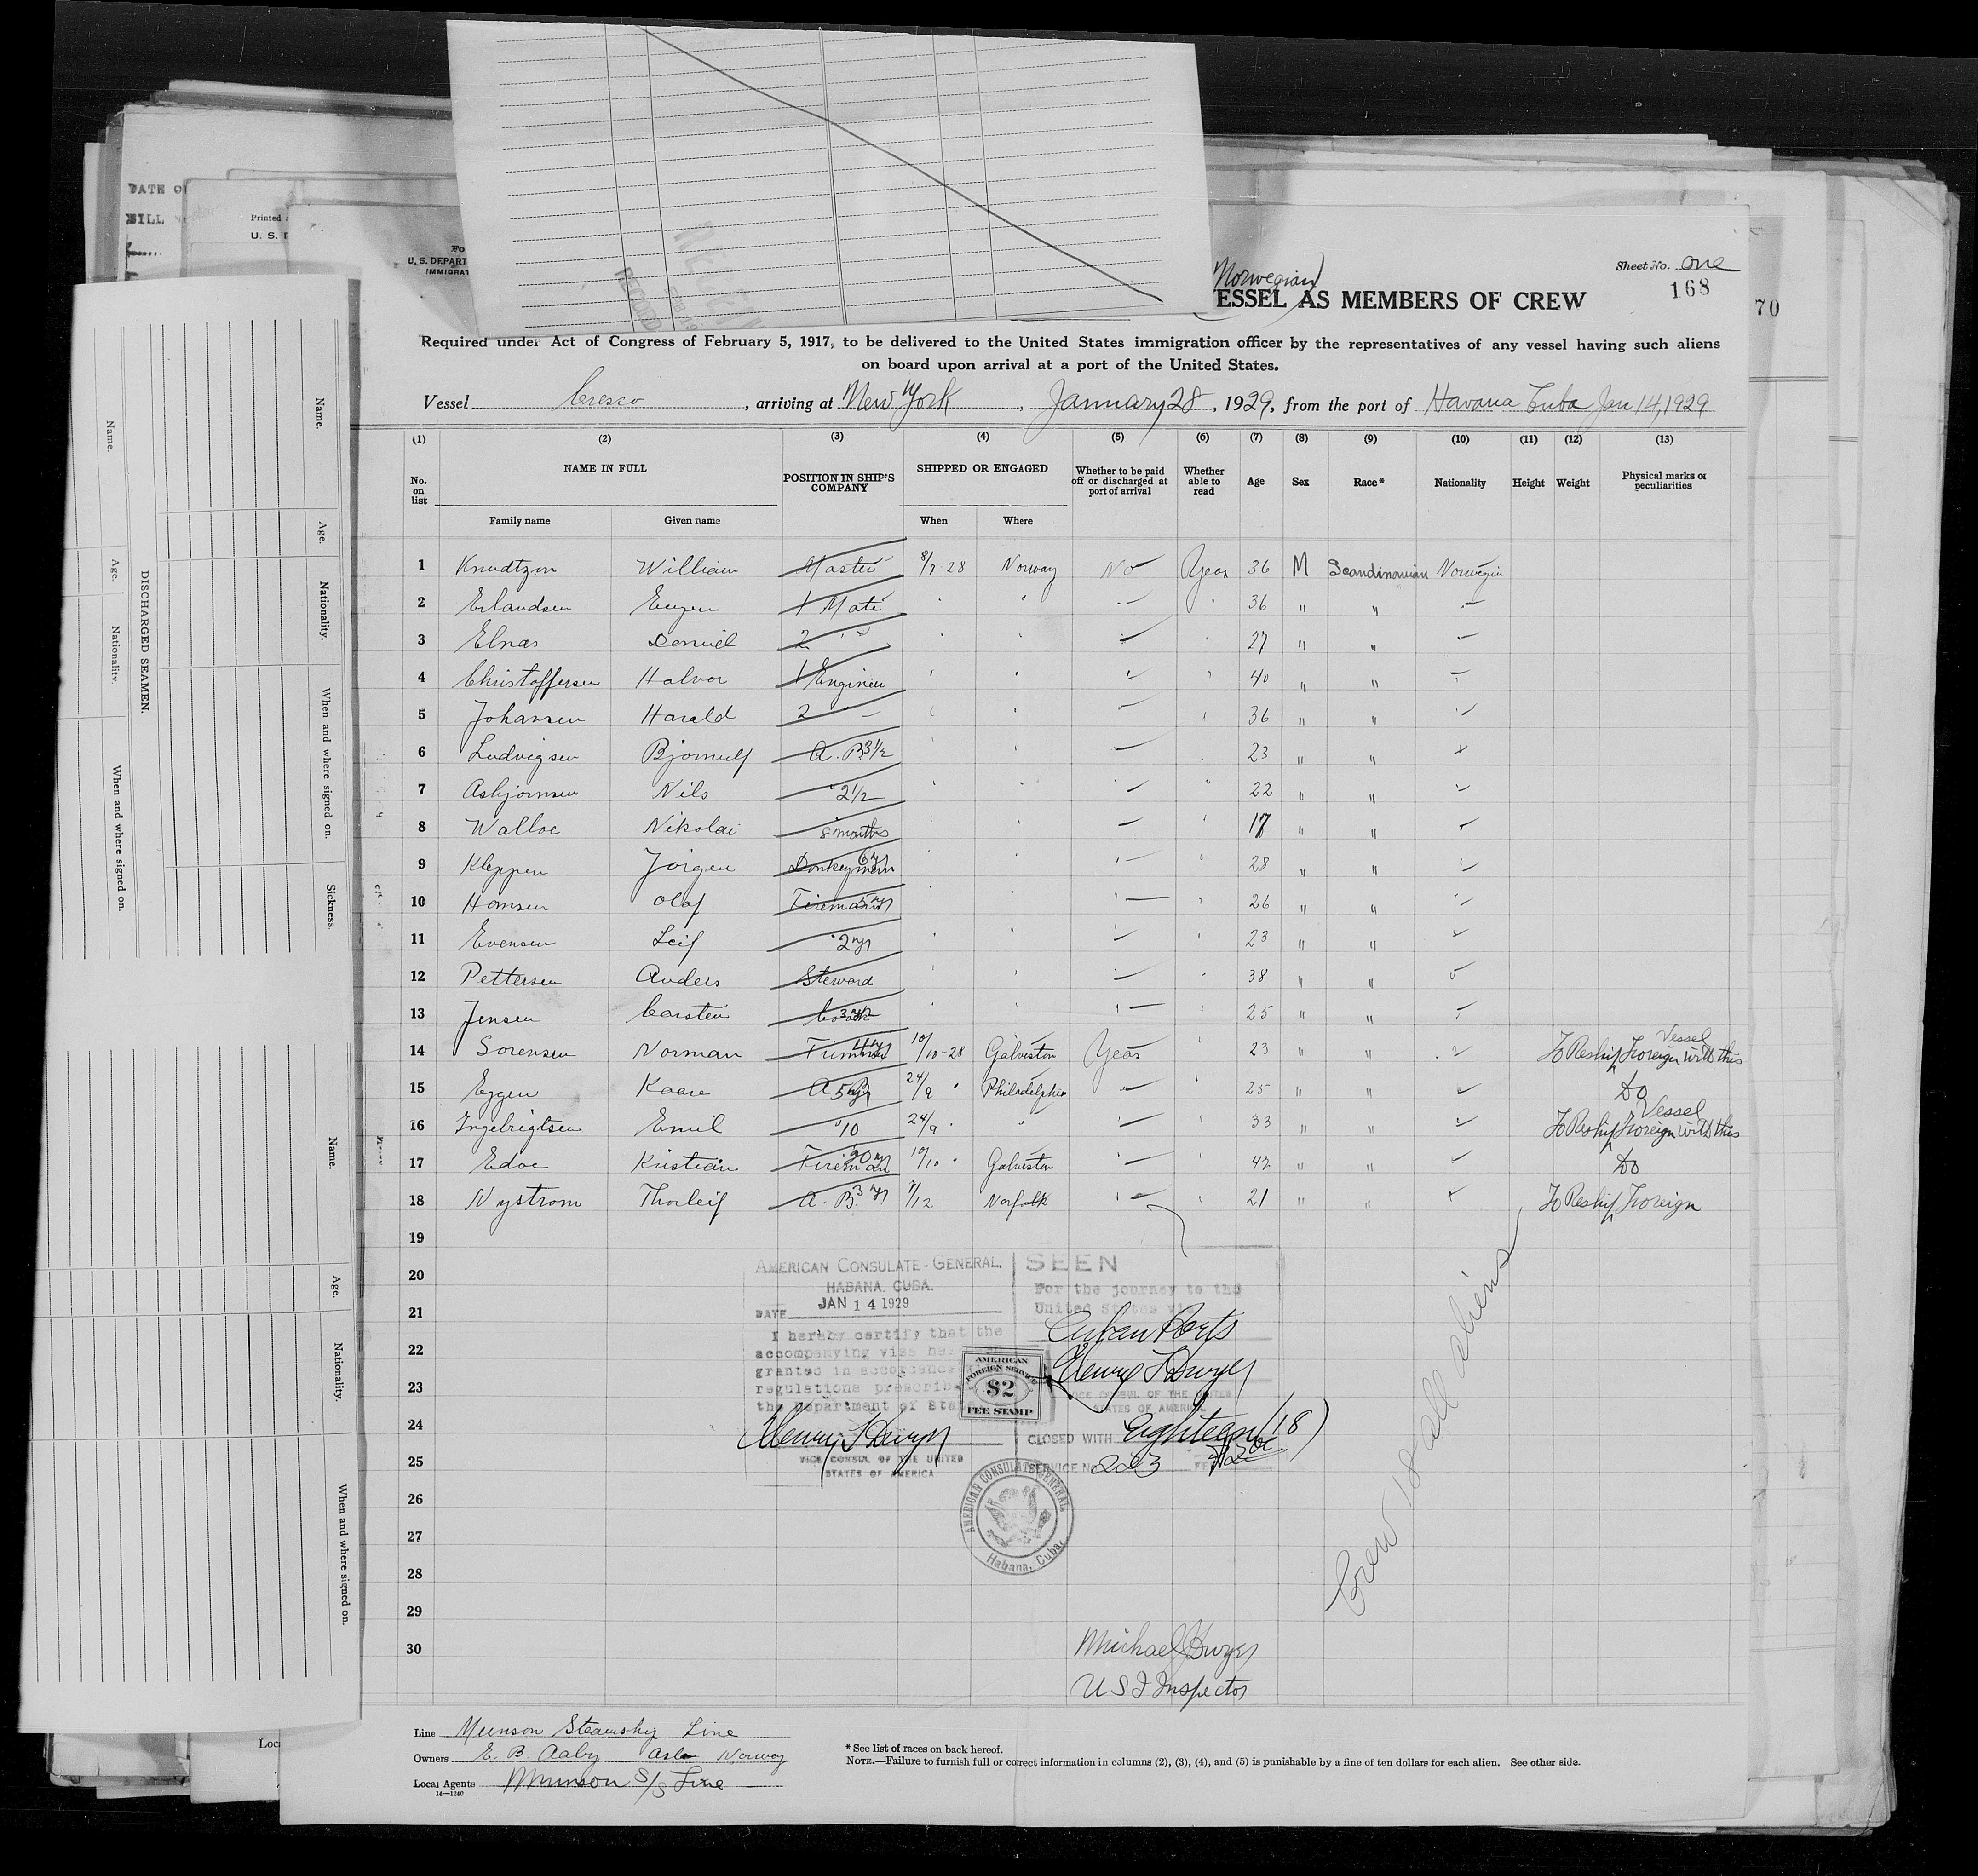 DATE O
BILL
Printed
U. S. D
Fo
U. S. DEPART
IMMIGRAT
RECORD
Norwegian
ESSEL AS MEMBERS OF CREW
Sheet No. One
168
70
Required under Act of Congress of February 5, 1917, to be delivered to the United States immigration officer by the representatives of any vessel having such aliens
on board upon arrival at a port of the United States.
Vessel Cresco, arriving at New York, January 28, 1929, from the port of Havana Cuba Jan 14, 1929
(1) (2) (3) (4) (5) (6) (7) (8) (9) (10) (11) (12) (13)
No. on list NAME IN FULL POSITION IN SHIP'S COMPANY SHIPPED OR ENGAGED Whether to be paid off or discharged at port of arrival Whether able to read Age Sex Race* Nationality Height Weight Physical marks or peculiarities
Family name Given name When Where
1 Knudtzon William Master 8/7-28 Norway No Yeas 36 M Scandinavian Norwegin
2 Erlandsen Eugen 1 Mate 36 " "
3 Elnas Daniel 2 27 " "
4 Christoffersen Halvor 1 Engineer 40 " "
5 Johansen Harald 2 36 " "
6 Ludvigsen Bjornulf A. B 3½ 23 " "
7 Asbjornsen Nils 2½ 22 " "
8 Walloe Nikolai 8 months 17 " "
9 Kleppen Jorgen Donkeyman 6 yrs 28 " "
10 Hansen Olaf Fireman 26 " "
11 Evensen Leif 2 yrs 23 " "
12 Pettersen Anders Steward 38 " "
13 Jensen Carsten Cook 25 " "
14 Sorensen Norman Trimmer 10/10-28 Galveston Yeas 23 " " To Reship Foreign with this Vessel
15 Eggen Kaare A B 5 yrs 24/9 " Philadelphia 25 " " Do
16 Ingebrigtsen Emil " 10 24/9 " " 33 " " To Reship Foreign with this Vessel
17 Edoe Kristian Fireman 20 yrs 10/10 " Galveston 42 " " Do
18 Nystrom Thorleif A. B. 3 yrs 7/12 Norfolk 21 " " To Reship Foreign
19
20
21
22
23
24
25
26
27
28
29
30
AMERICAN CONSULATE-GENERAL.
HABANA. CUBA.
DATE JAN 14 1929
I hereby certify that the
accompanying visa has
granted in accordance
regulations prescrib
the Department of Stat
Henry T Dwyer
VICE CONSUL OF THE UNITED
STATES OF AMERICA
SEEN
For the journey to the
United States via
Cuban Ports
Henry T Dwyer
VICE CONSUL OF THE UNITED
STATES OF AMERICA
CLOSED WITH Eighteen (18)
SERVICE No 223 FEE $2.00
AMERICAN
FOREIGN SERVICE
$2
FEE STAMP
AMERICAN CONSULATE GENERAL
Habana, Cuba.
Crew 18 all aliens
Michael Dwyer
U S I Inspector
Line Munson Steamship Line
Owners E. B. Aaby Oslo Norway
Local Agents Munson S/S Line
14—1240
* See list of races on back hereof.
NOTE.—Failure to furnish full or correct information in columns (2), (3), (4), and (5) is punishable by a fine of ten dollars for each alien. See other side.
Loc
DISCHARGED SEAMEN.
Name.
Age.
Nationality.
When and where signed on.
Name.
Age.
Nationality.
When and where signed on.
Sickness.
Name.
Age.
Nationality.
When and where signed on.